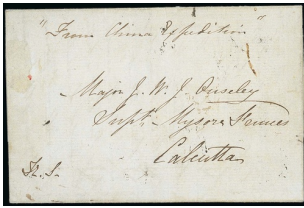 "From China Expedition"
Major J. W. J. Ouseley
Supt. Mysore Princes
Calcutta
H. S.